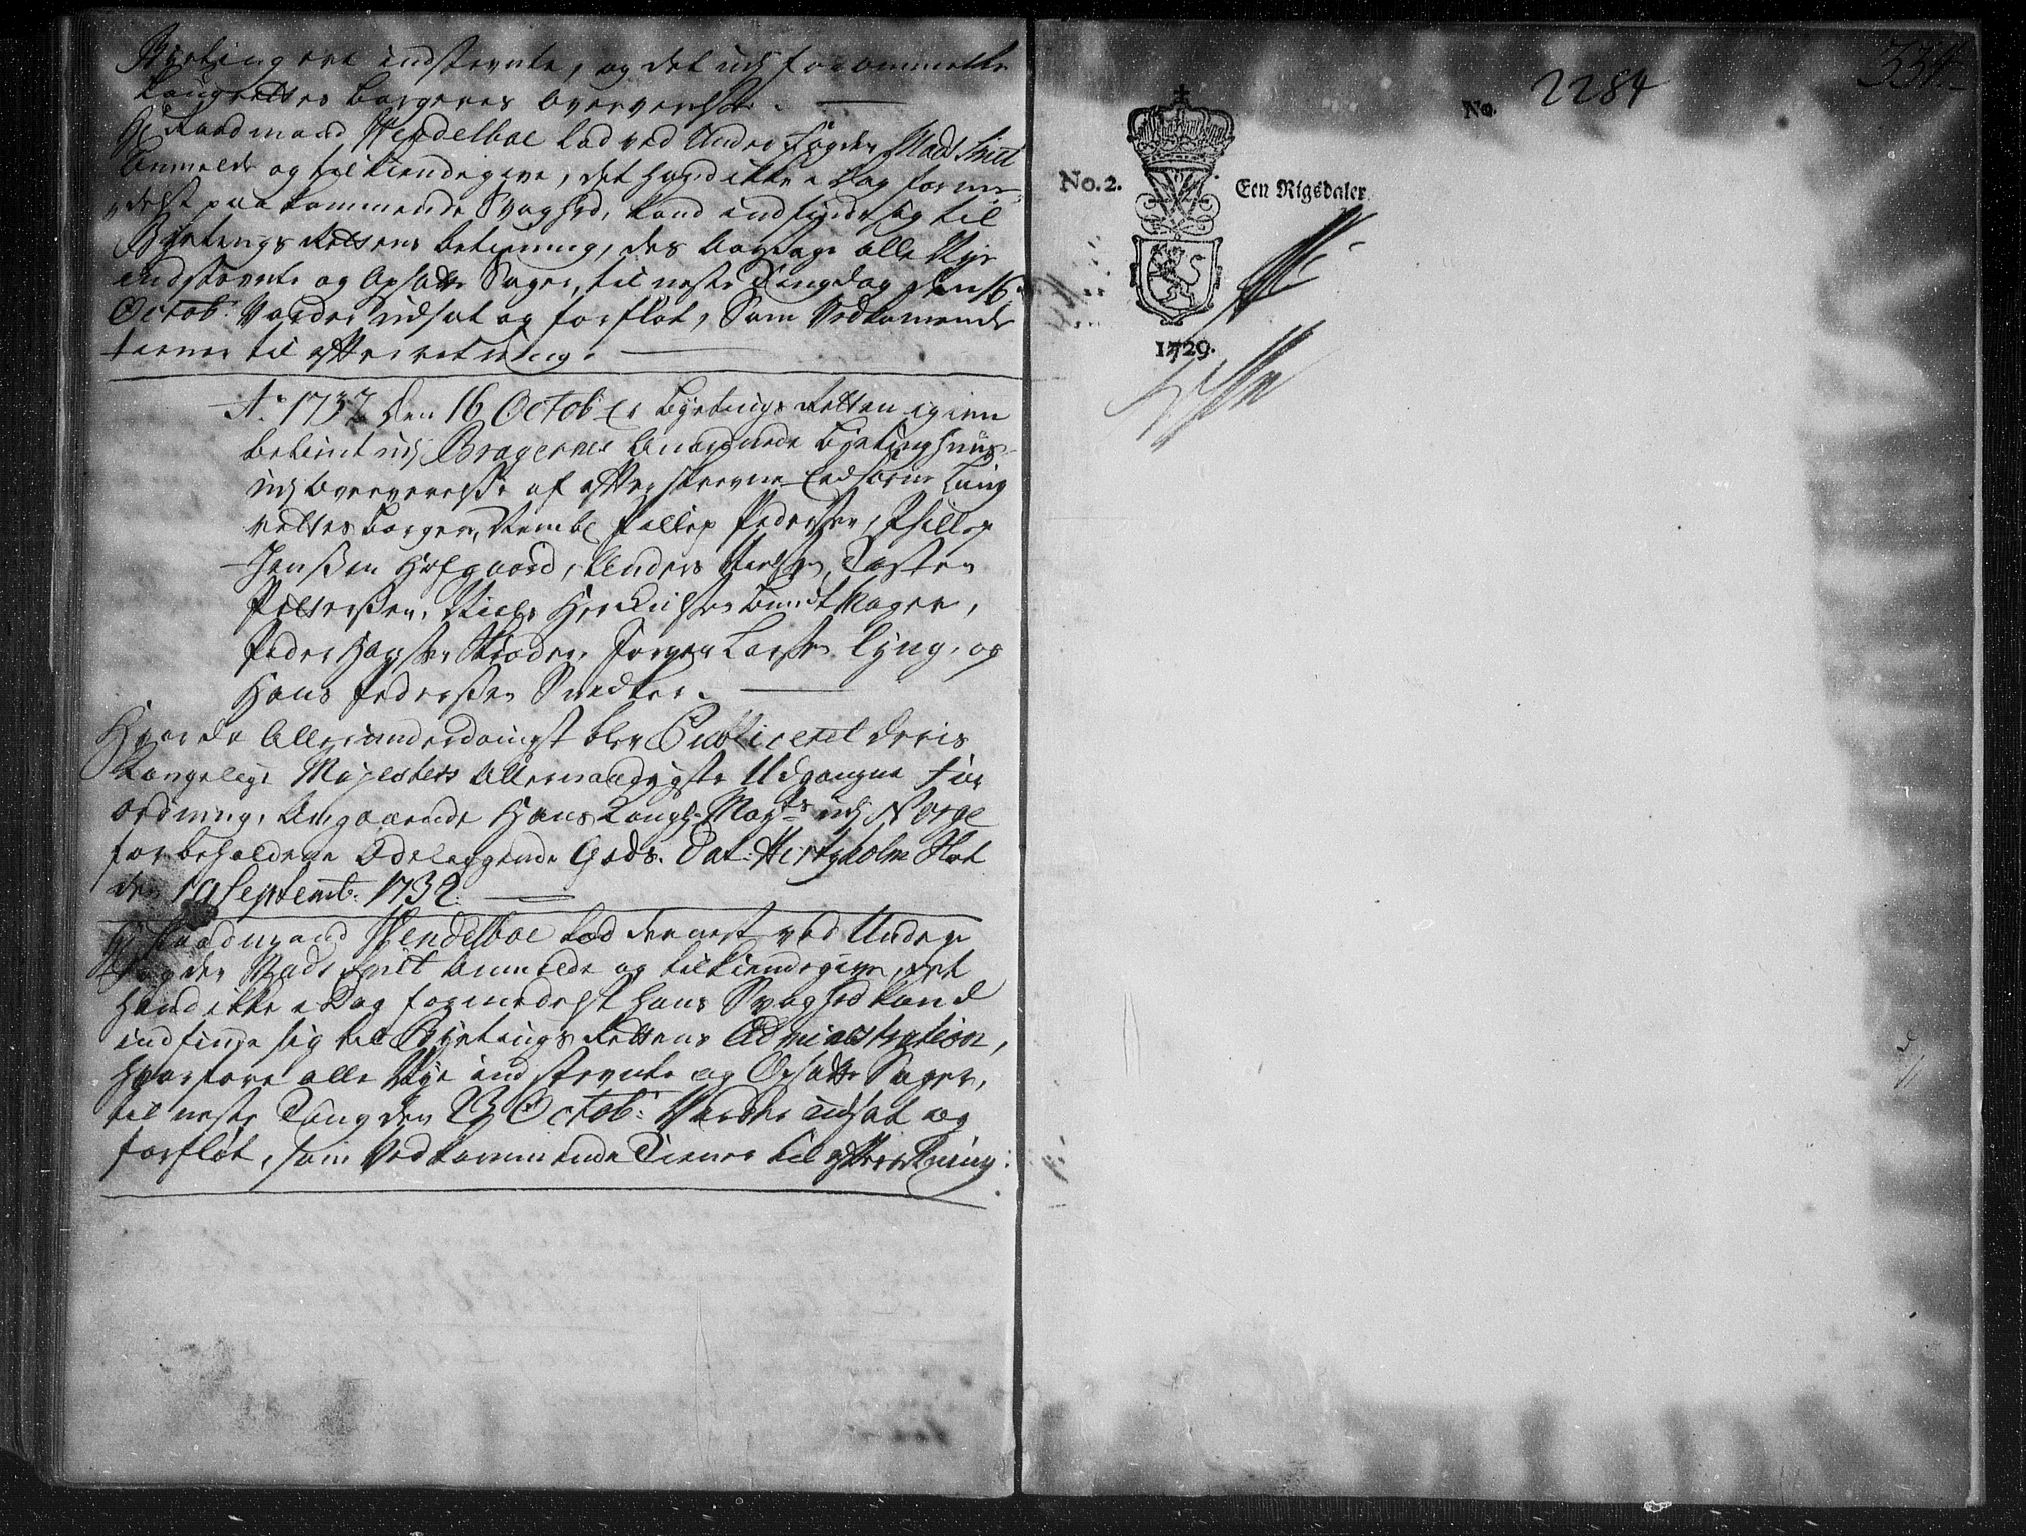 Byeting ere indstevnte, og det udj forommelte
Laugrettes borgeres overværelse.
Hr Raadmand Wendelboe lod ved Under fogden Mads Smit
anmelde og tilkiendegive, det hand ikke i Dag forme-
delst paakommende Svaghed, kand indfinde sig til
Byetings Rettens betiening, des aarsage alle Nye
indstevnte og Opsatte Sager, til neste Tingdag den 16
Octob: Vorder udsat og forfløt, Som Vedkommende
tiener til efterretning.
Ao 1732 den 16 Octob. er Byetings Retten igien
betient udj Bragernes anordnede Byetinghuus
udj overværelse af efterskrevne Eedsorne Laug
rettes borgere, Nembl Pallep Pedersen, Phillip
Jenssen Hofgaard, Anders Nielsen, Tosten
Pettersen, Niels Herculsen Buntmager,
Peder Hansen Skrøder, Jørgen Larsen Lyng, og
Hans Pedersen Snedker.
Hvor da Allerunderdanigst blev Publiceret deris
Kongelige Majestets Allernaadigste Udgangne For
ordning, Angaaende Hans Kongl. Mayts udj Norge
forbeholdene Odelsgende Gods. Dat: Hirtzholm Slot
den 19 Septemb: 1732.
Hr Raadmand Wendelboe lod dernest ved Under
fogden Mads Smit anmelde og tilkiendegive, det
Hand ikke i Dag formedelst hans Svaghed kand
indfinde sig til Byetings Rettens Administration,
hvorfore alle Nye indstevnte og Opsatte Sager,
til neste Ting den 23 Octob: Vorder udsat og
forfløt, som Vedkommende Tiener til efterretning.
334
No. 2284
No. 2. Een Rigsdaler.
1729.